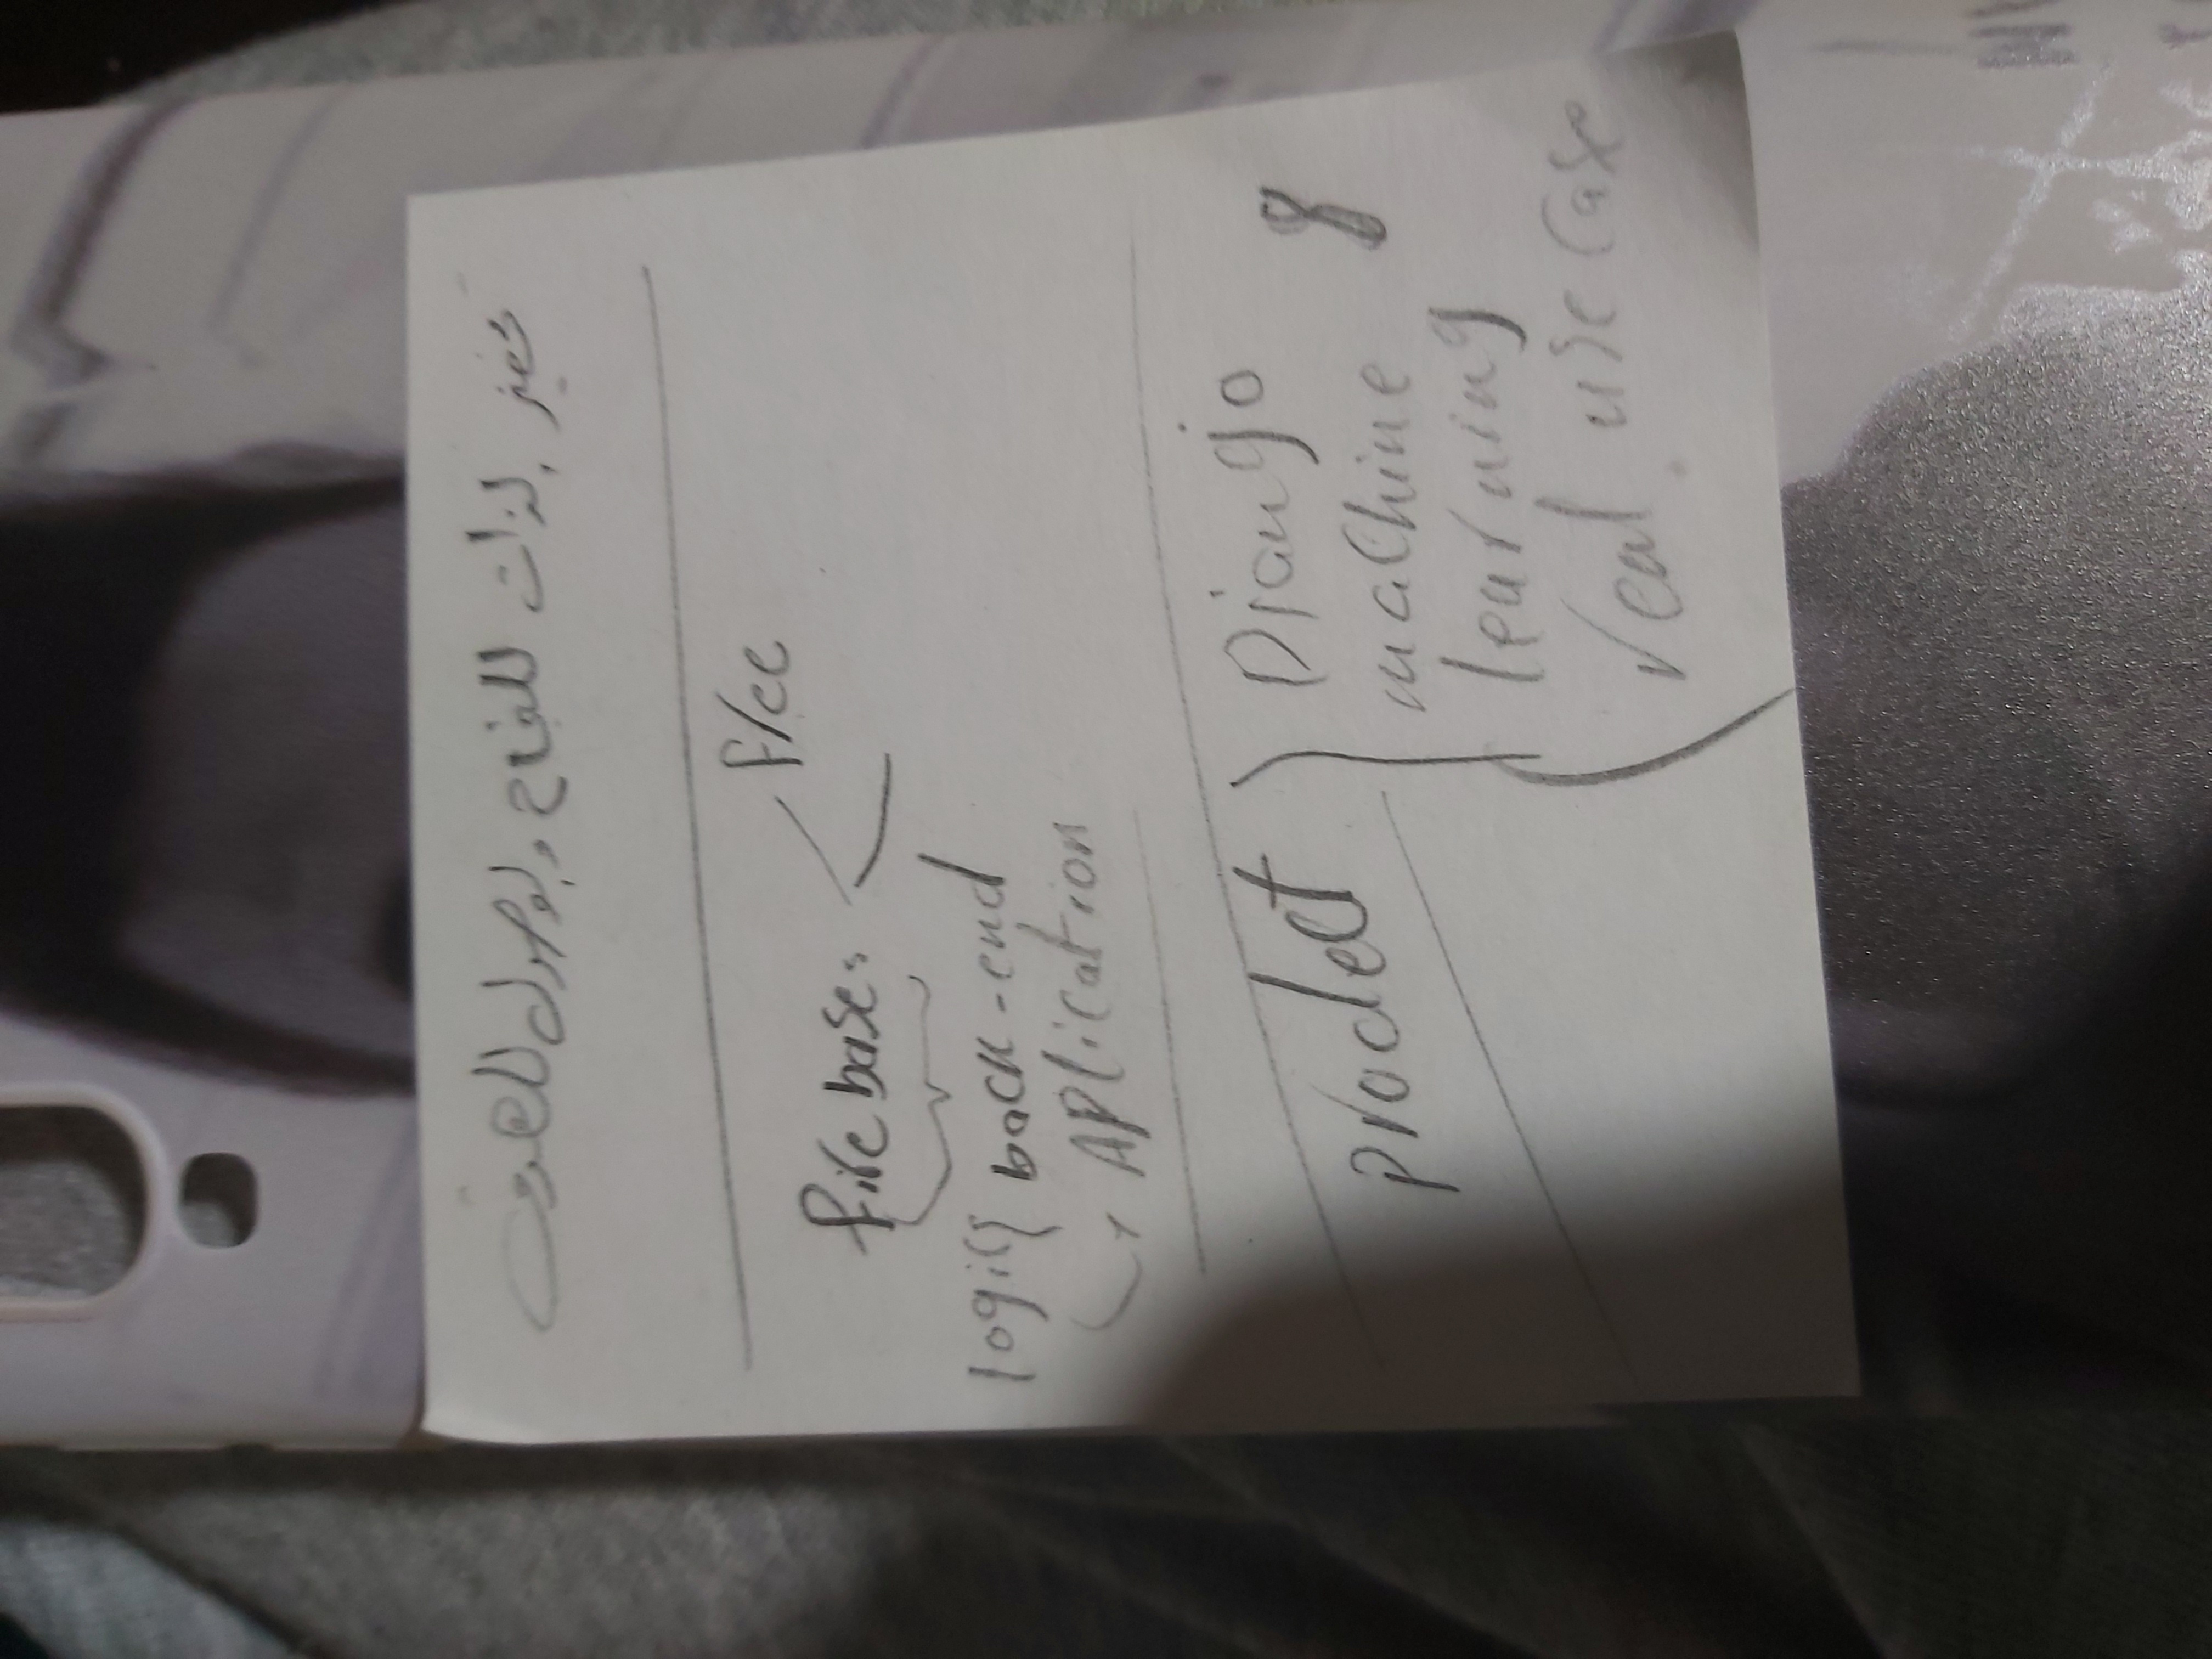 تحفيز لذات للنجاح ولوصول للهدف
free
fire base:
logic back-end
APlication
prodect
Django
machine
learning
real use case
8